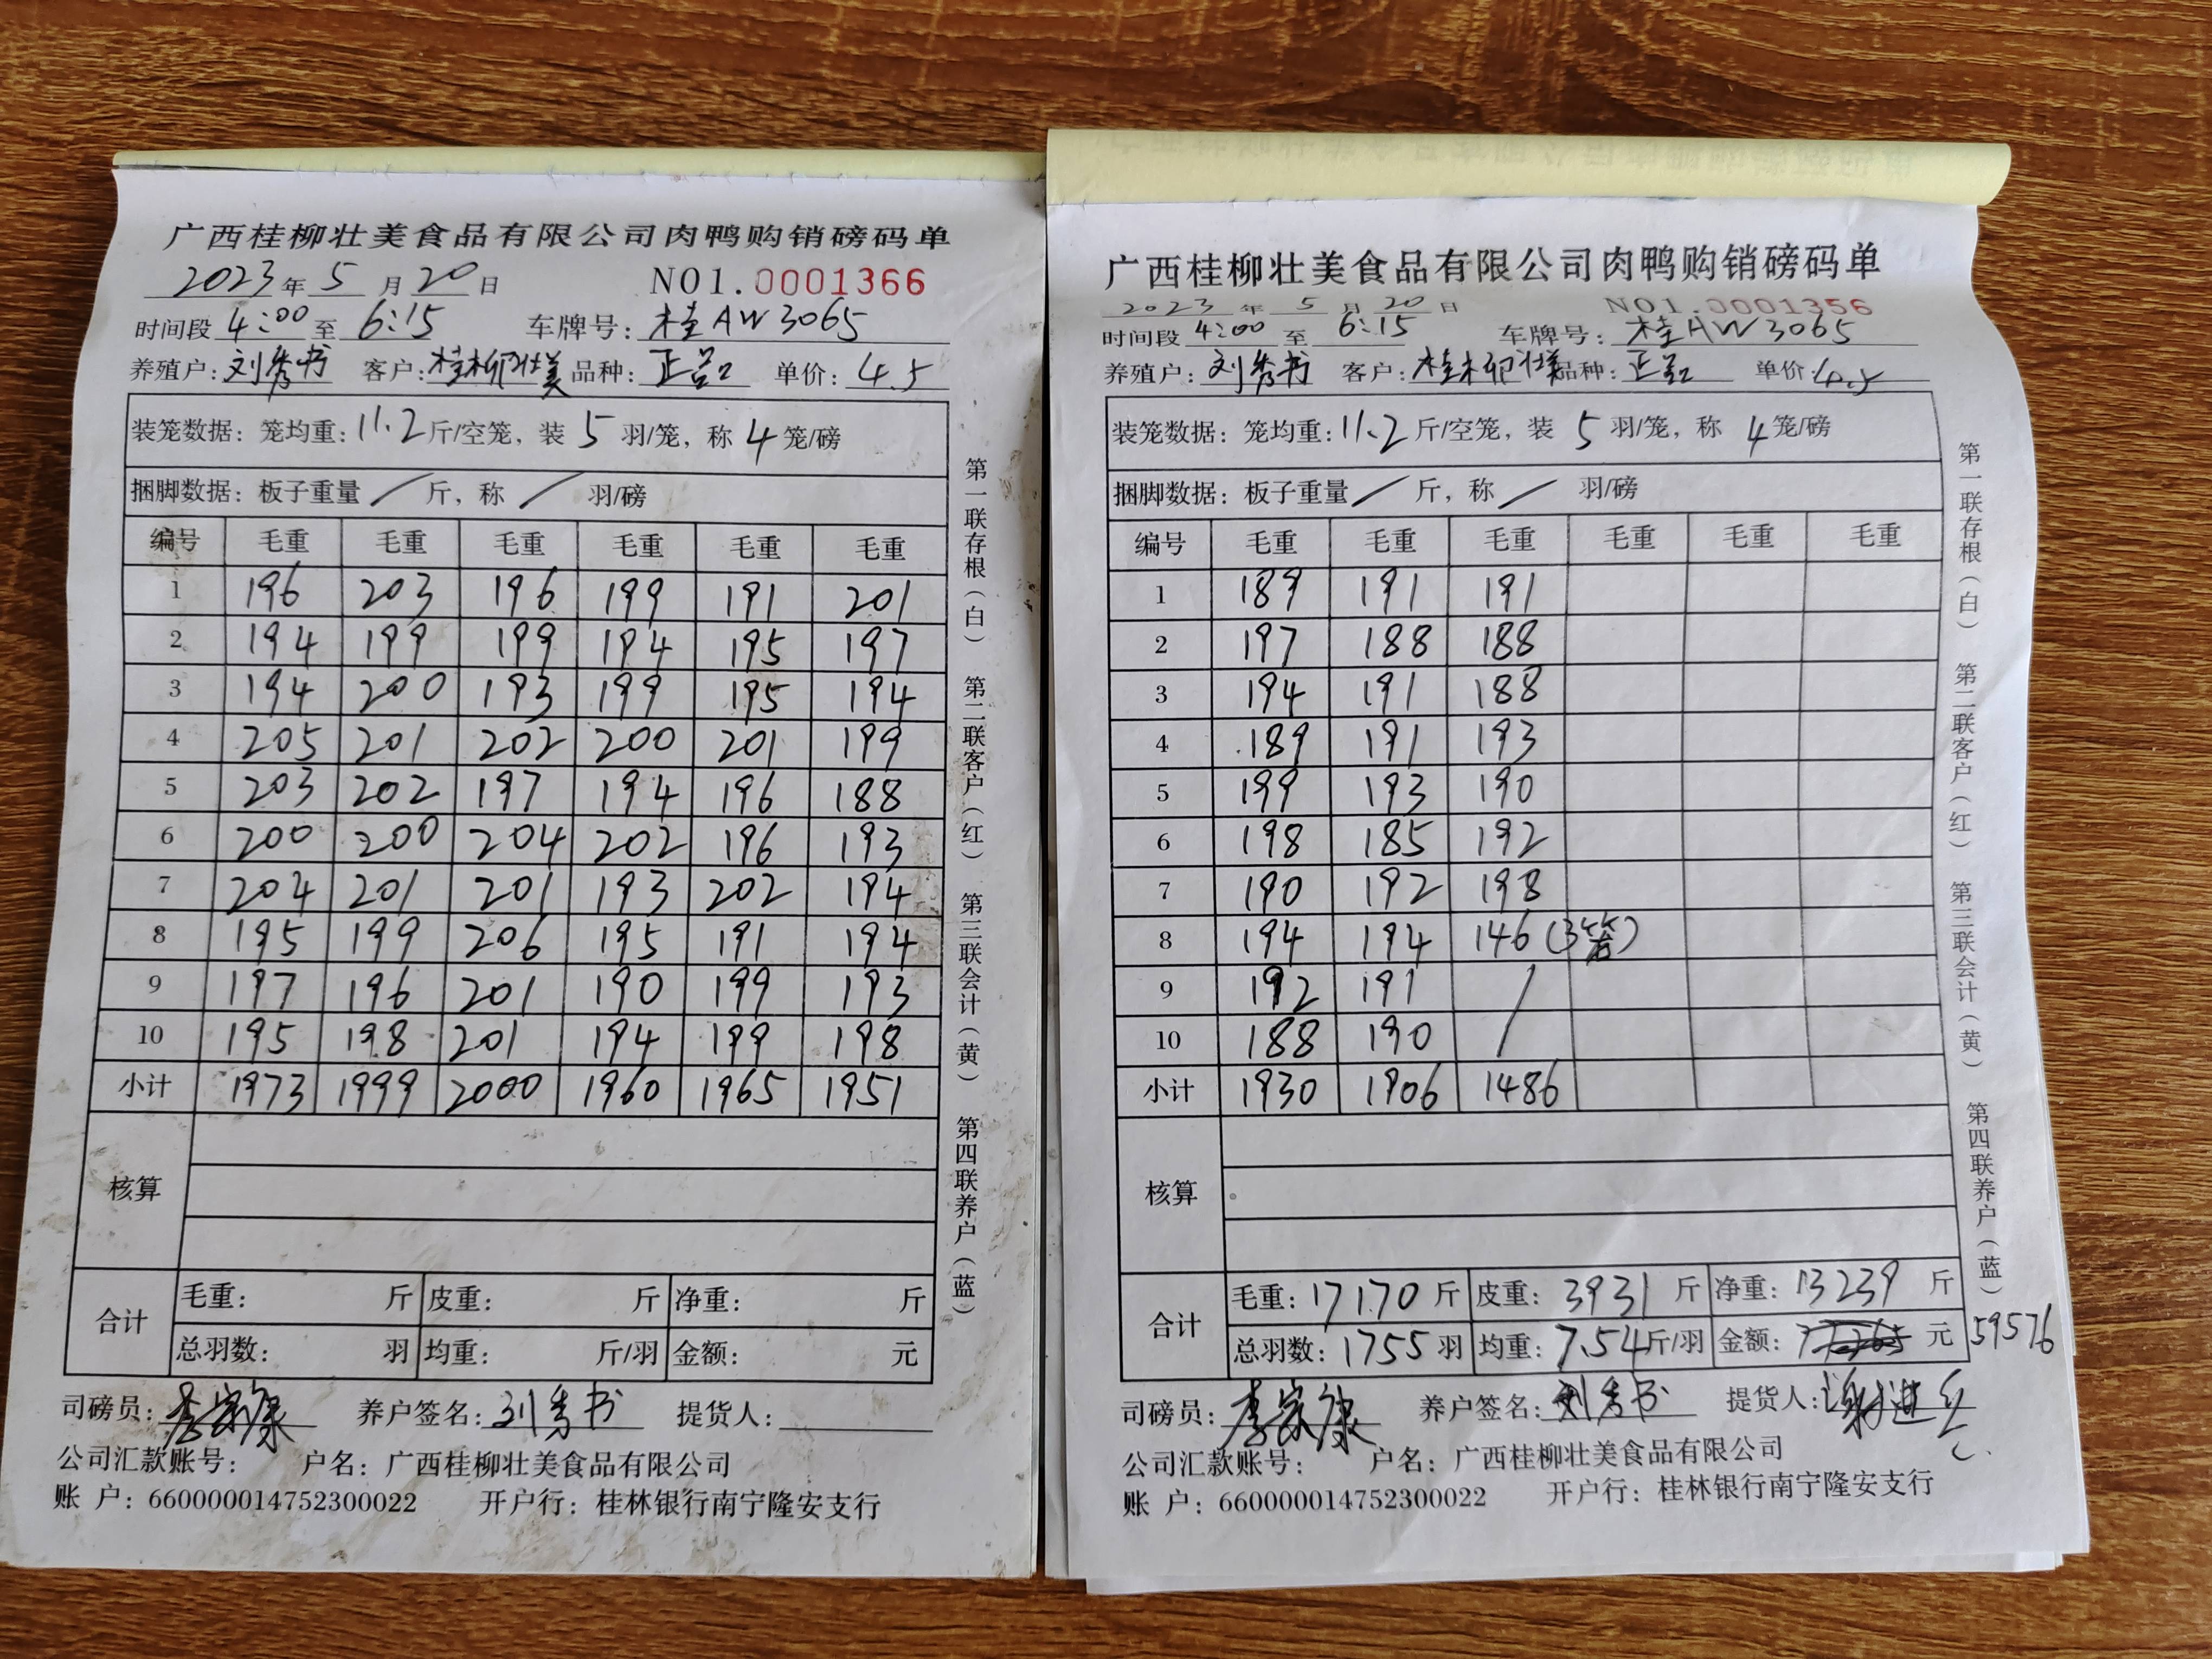 广西桂柳壮美食品有限公司肉鸭购销磅码单
2023年 5 月 20 日 NO1.0001366
时间段 4:00 至 6:15 车牌号: 桂AW3065
养殖户: 刘秀书 客户: 桂柳壮美 品种: 单价: 4.5
装笼数据: 笼均重: 11.2 斤/空笼, 装 5 羽/笼, 称 4 笼/磅
捆脚数据: 板子重量 / 斤, 称 / 羽/磅
编号 毛重 毛重 毛重 毛重 毛重 毛重
1 196 203 196 199 191 201
2 194 199 199 194 195 197
3 194 200 193 199 195 194
4 205 201 202 200 201 199
5 203 202 197 194 196 188
6 200 200 204 202 196 193
7 204 201 201 193 202 194
8 195 199 206 195 191 194
9 197 196 201 190 199 193
10 195 198 201 194 199 198
小计 1973 1999 2000 1960 1965 1951
核算
合计
毛重: 斤 皮重: 斤 净重: 斤
总羽数: 羽 均重: 斤/羽 金额: 元
司磅员: 李家康 养户签名: 刘秀书 提货人:
公司汇款账号: 户名: 广西桂柳壮美食品有限公司
账 户: 660000014752300022 开户行: 桂林银行南宁隆安支行
第一联存根(白) 第二联客户(红) 第三联会计(黄) 第四联养户(蓝)
广西桂柳壮美食品有限公司肉鸭购销磅码单
2023 年 5 月 20 日 NO1.0001356
时间段 4:00 至 6:15 车牌号: 桂AW3065
养殖户: 刘秀书 客户: 桂柳壮美 品种: 单价: 4.5
装笼数据: 笼均重: 11.2 斤/空笼, 装 5 羽/笼, 称 4 笼/磅
捆脚数据: 板子重量 / 斤, 称 / 羽/磅
编号 毛重 毛重 毛重 毛重 毛重 毛重
1 189 191 191
2 197 188 188
3 194 191 188
4 189 191 193
5 199 193 190
6 198 185 192
7 190 192 198
8 194 194 146 (3笼)
9 192 191 /
10 188 190 /
小计 1930 1906 1486
核算
合计
毛重: 17170 斤 皮重: 3931 斤 净重: 13239 斤
总羽数: 1755 羽 均重: 7.54 斤/羽 金额: 元 59576
司磅员: 李家康 养户签名: 刘秀书 提货人:
公司汇款账号: 户名: 广西桂柳壮美食品有限公司
账 户: 660000014752300022 开户行: 桂林银行南宁隆安支行
第一联存根(白) 第二联客户(红) 第三联会计(黄) 第四联养户(蓝)